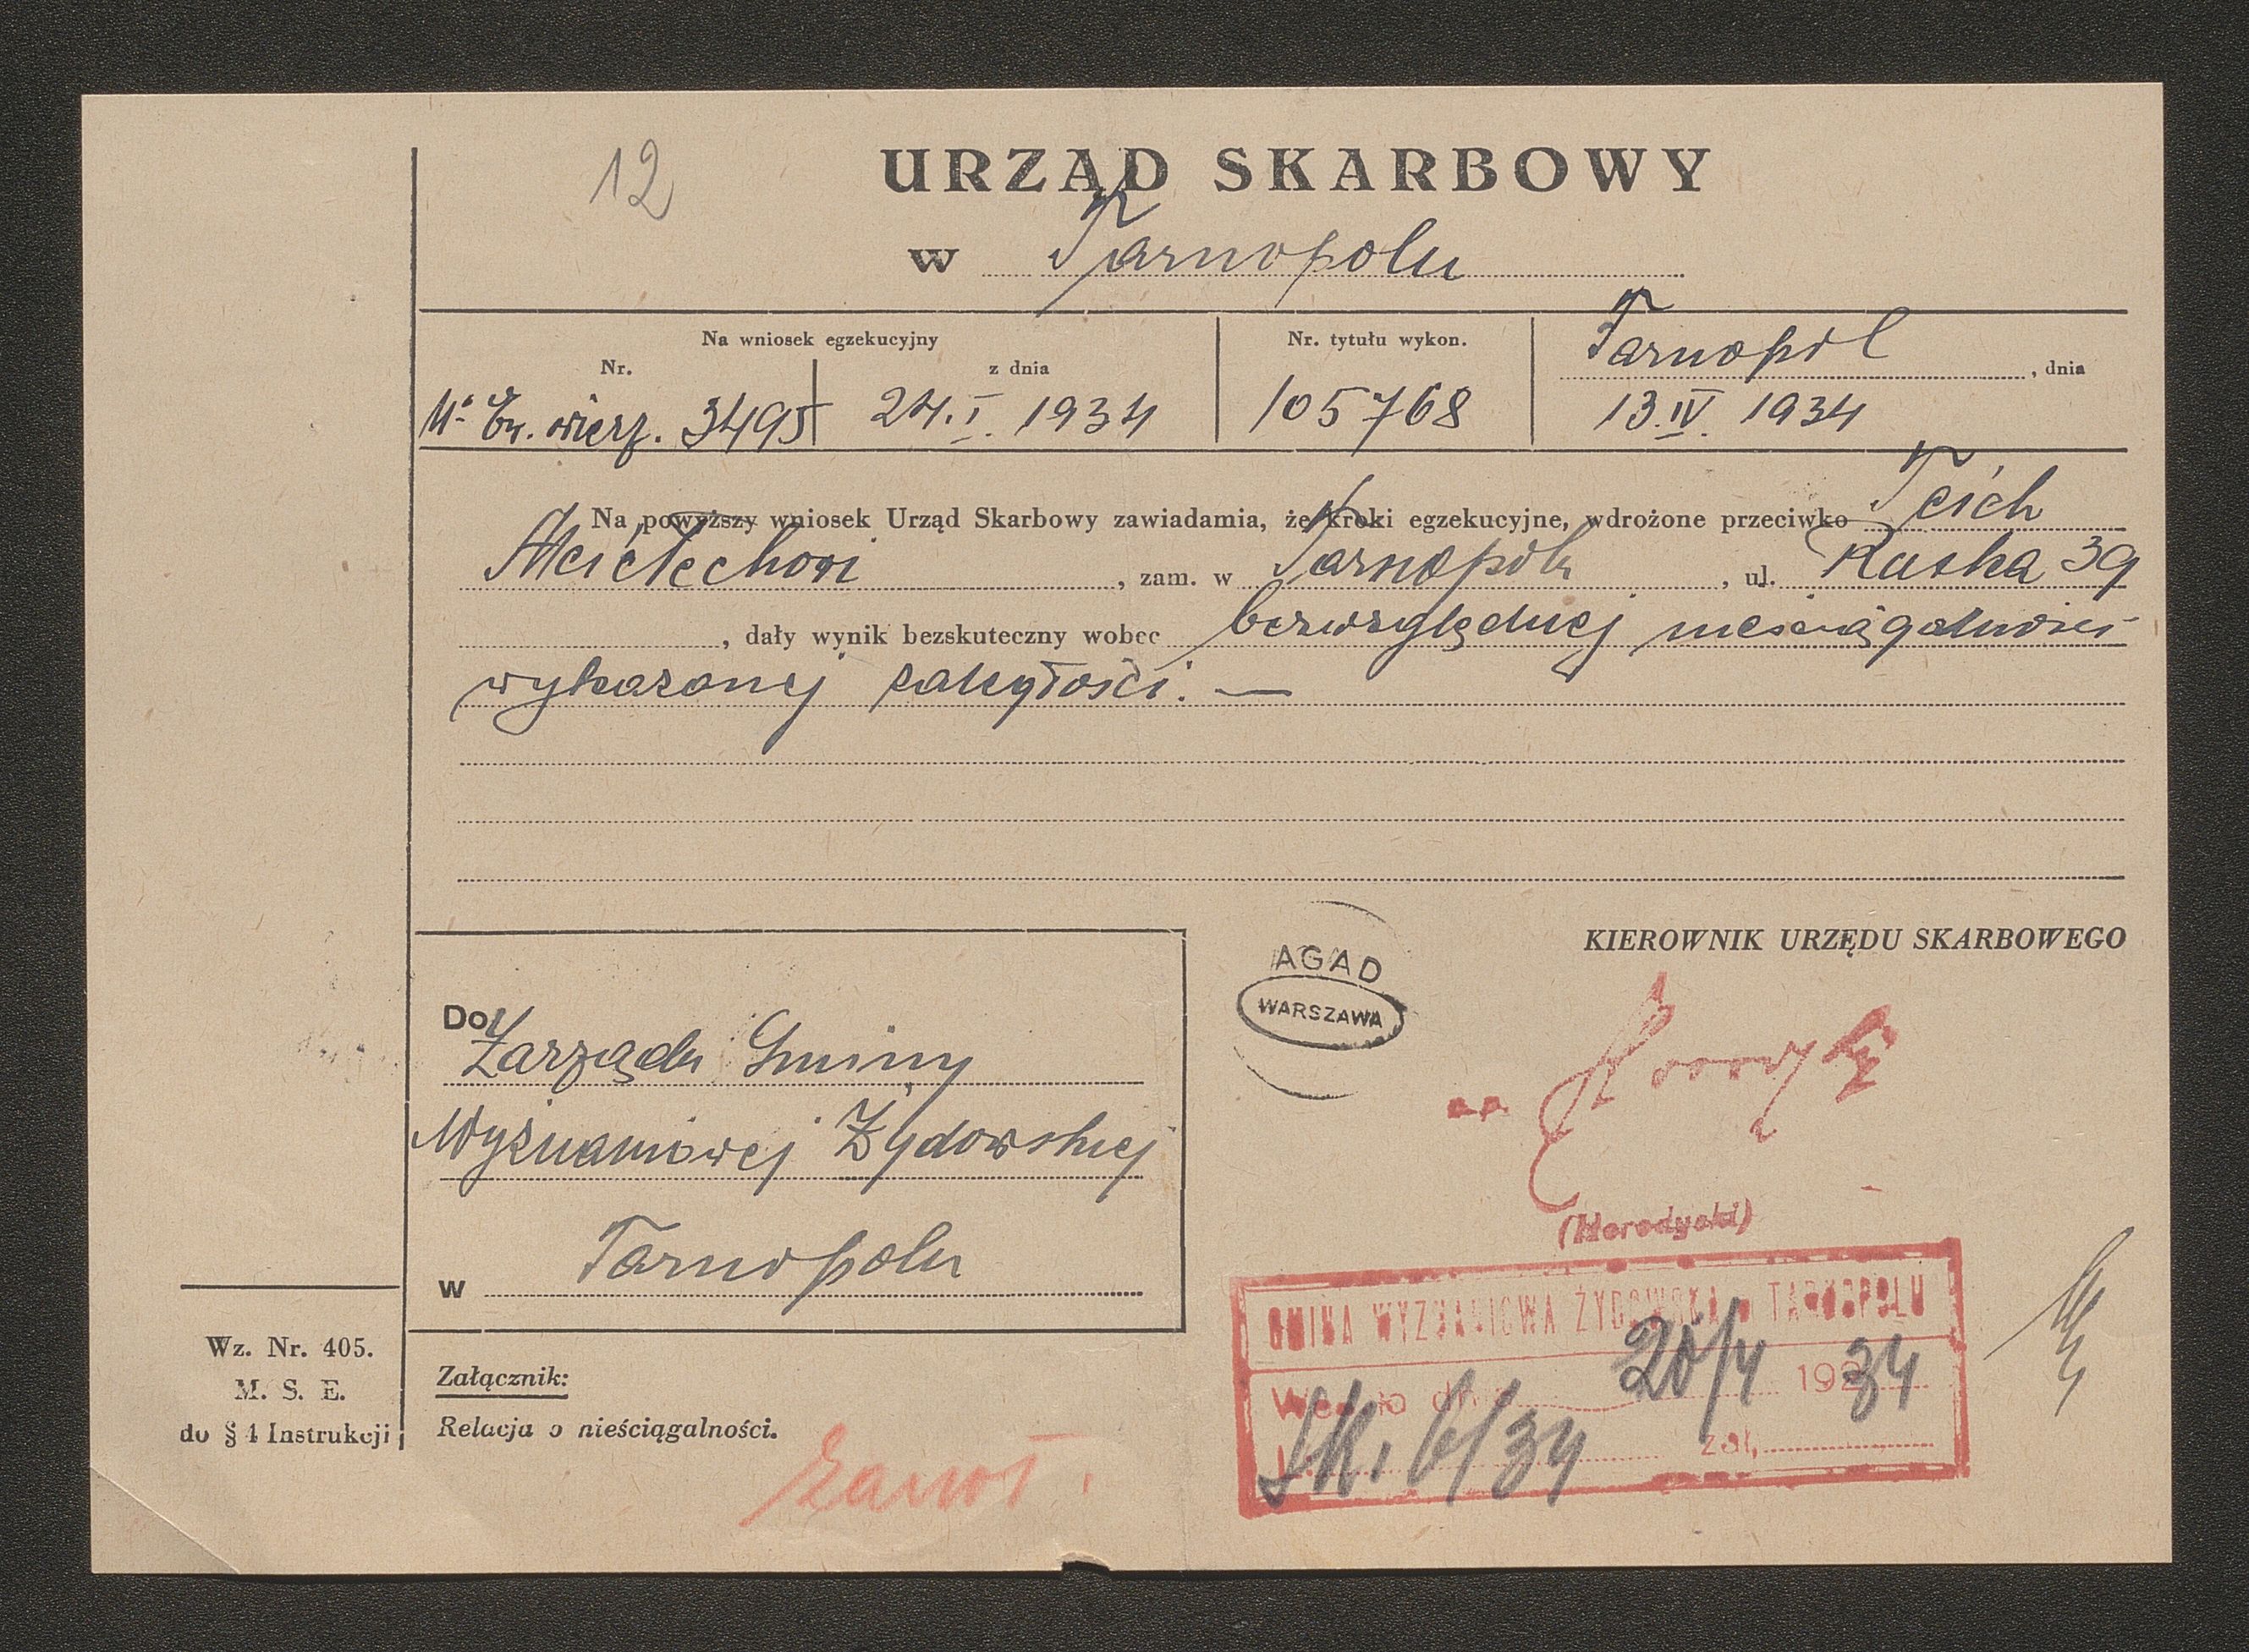 12
URZĄD SKARBOWY
w Tarnopolu
Na wniosek egzekucyjny
Nr.
z dnia
Nr. tytułu wykon.
Tarnopol, dnia
wierz. 3495
24.I. 1934
105768
13.IV. 1934
Na powyższy wniosek Urząd Skarbowy zawiadamia, że kroki egzekucyjne, wdrożone przeciwko Teich
, zam. w Tarnopolu, ul. Ruska 39
, dały wynik bezskuteczny wobec bezwzględnej nieściągalności
wykazanej zaległości. —
KIEROWNIK URZĘDU SKARBOWEGO
AGAD
WARSZAWA
Do Zarządu Gminy
Wyznaniowej Żydowskiej
w Tarnopolu
(Horodyski)
GMINA WYZNANIOWA ŻYDOWSKA w TARNOPOLU
Weszło dn. 20/4 1934
L. 6/34 zał.
Wz. Nr. 405.
M. S. E.
do § 4 Instrukcji
Załącznik:
Relacja o nieściągalności.